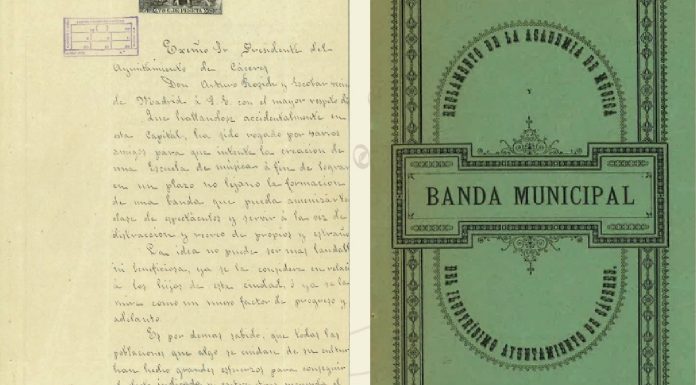 Exémo Sr Presidente del
Ayuntamiento de Cáceres
Don Arturo y Escobar
de Madrid á S. E. con el mayor respeto
Que hallandose accidentalmente en
esta Capital, ha sido rogado por varios
amigos para que intente la creacion de
una Escuela de música á fin de lograr
en un plazo no lejano la formacion
de una banda que pueda amenizar
clase de espectáculos y servir á la vez de
distraccion y recreo de propios y estraños
La idea no puede ser mas
ni beneficiosa, ya se la considere en
á los hijos de esta ciudad, ó ya se la
mire como un nuevo factor de progreso y
adelanto.
Es por demas sabido, que todas las
poblaciones que algo se cuidan de su
han hecho grandes esfuerzos para conseguir
REGLAMENTO DE LA ACADEMIA DE MÚSICA
Y
BANDA MUNICIPAL
DEL ILUSTRÍSIMO AYUNTAMIENTO DE CÁCERES.